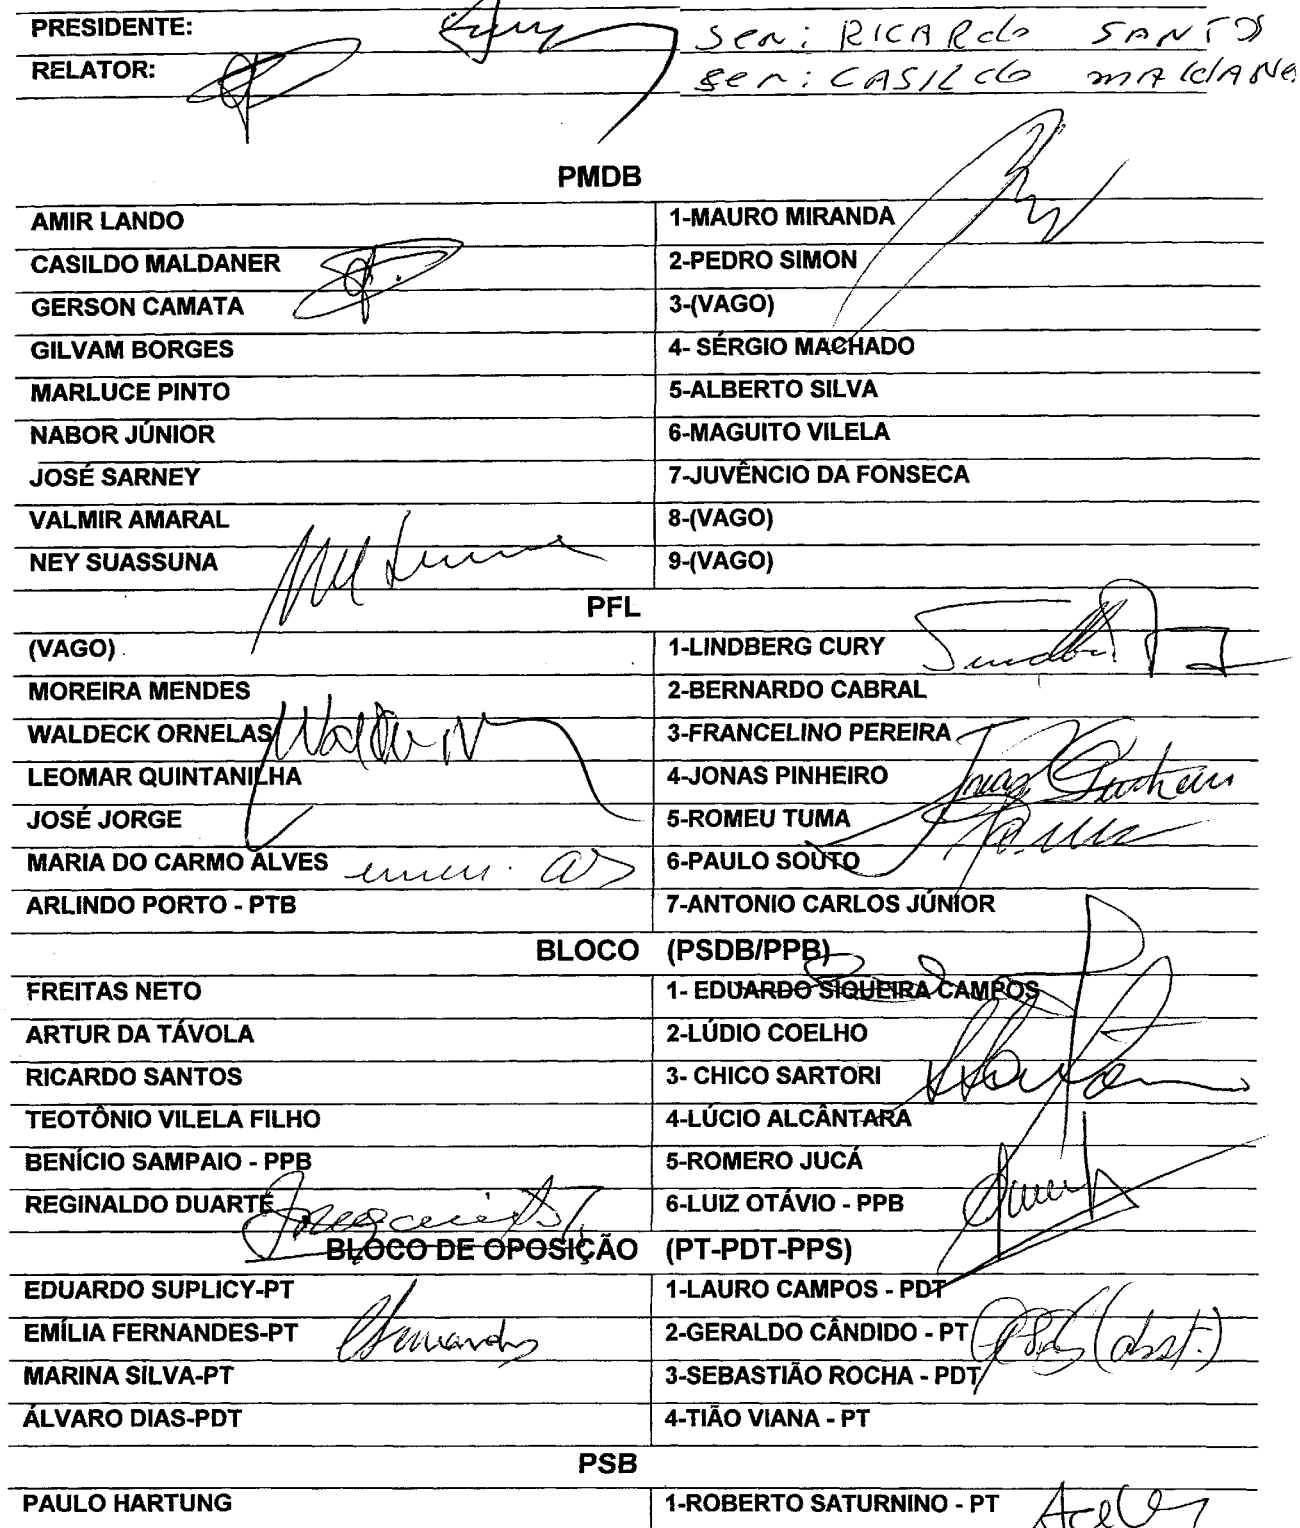 PRESIDENTE: Sen: RICARdo SANTOS
RELATOR: Sen: CASILdo MAldANe
PMDB
AMIR LANDO 1-MAURO MIRANDA
CASILDO MALDANER 2-PEDRO SIMON
GERSON CAMATA 3-(VAGO)
GILVAM BORGES 4- SÉRGIO MACHADO
MARLUCE PINTO 5-ALBERTO SILVA
NABOR JÚNIOR 6-MAGUITO VILELA
JOSÉ SARNEY 7-JUVÊNCIO DA FONSECA
VALMIR AMARAL 8-(VAGO)
NEY SUASSUNA 9-(VAGO)
PFL
(VAGO) 1-LINDBERG CURY
MOREIRA MENDES 2-BERNARDO CABRAL
WALDECK ORNELAS 3-FRANCELINO PEREIRA
LEOMAR QUINTANILHA 4-JONAS PINHEIRO Jonas Pinheiro
JOSÉ JORGE 5-ROMEU TUMA
MARIA DO CARMO ALVES 6-PAULO SOUTO
ARLINDO PORTO - PTB 7-ANTONIO CARLOS JÚNIOR
BLOCO (PSDB/PPB)
FREITAS NETO 1- EDUARDO SIQUEIRA CAMPOS
ARTUR DA TÁVOLA 2-LÚDIO COELHO
RICARDO SANTOS 3- CHICO SARTORI
TEOTÔNIO VILELA FILHO 4-LÚCIO ALCÂNTARA
BENÍCIO SAMPAIO - PPB 5-ROMERO JUCÁ
REGINALDO DUARTE 6-LUIZ OTÁVIO - PPB
BLOCO DE OPOSIÇÃO (PT-PDT-PPS)
EDUARDO SUPLICY-PT 1-LAURO CAMPOS - PDT
EMÍLIA FERNANDES-PT 2-GERALDO CÂNDIDO - PT (abst.)
MARINA SILVA-PT 3-SEBASTIÃO ROCHA - PDT
ÁLVARO DIAS-PDT 4-TIÃO VIANA - PT
PSB
PAULO HARTUNG 1-ROBERTO SATURNINO - PT